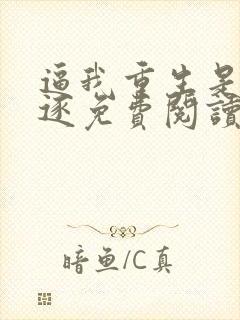 逼我重生是
逐免費閱讀
暗魚/C真